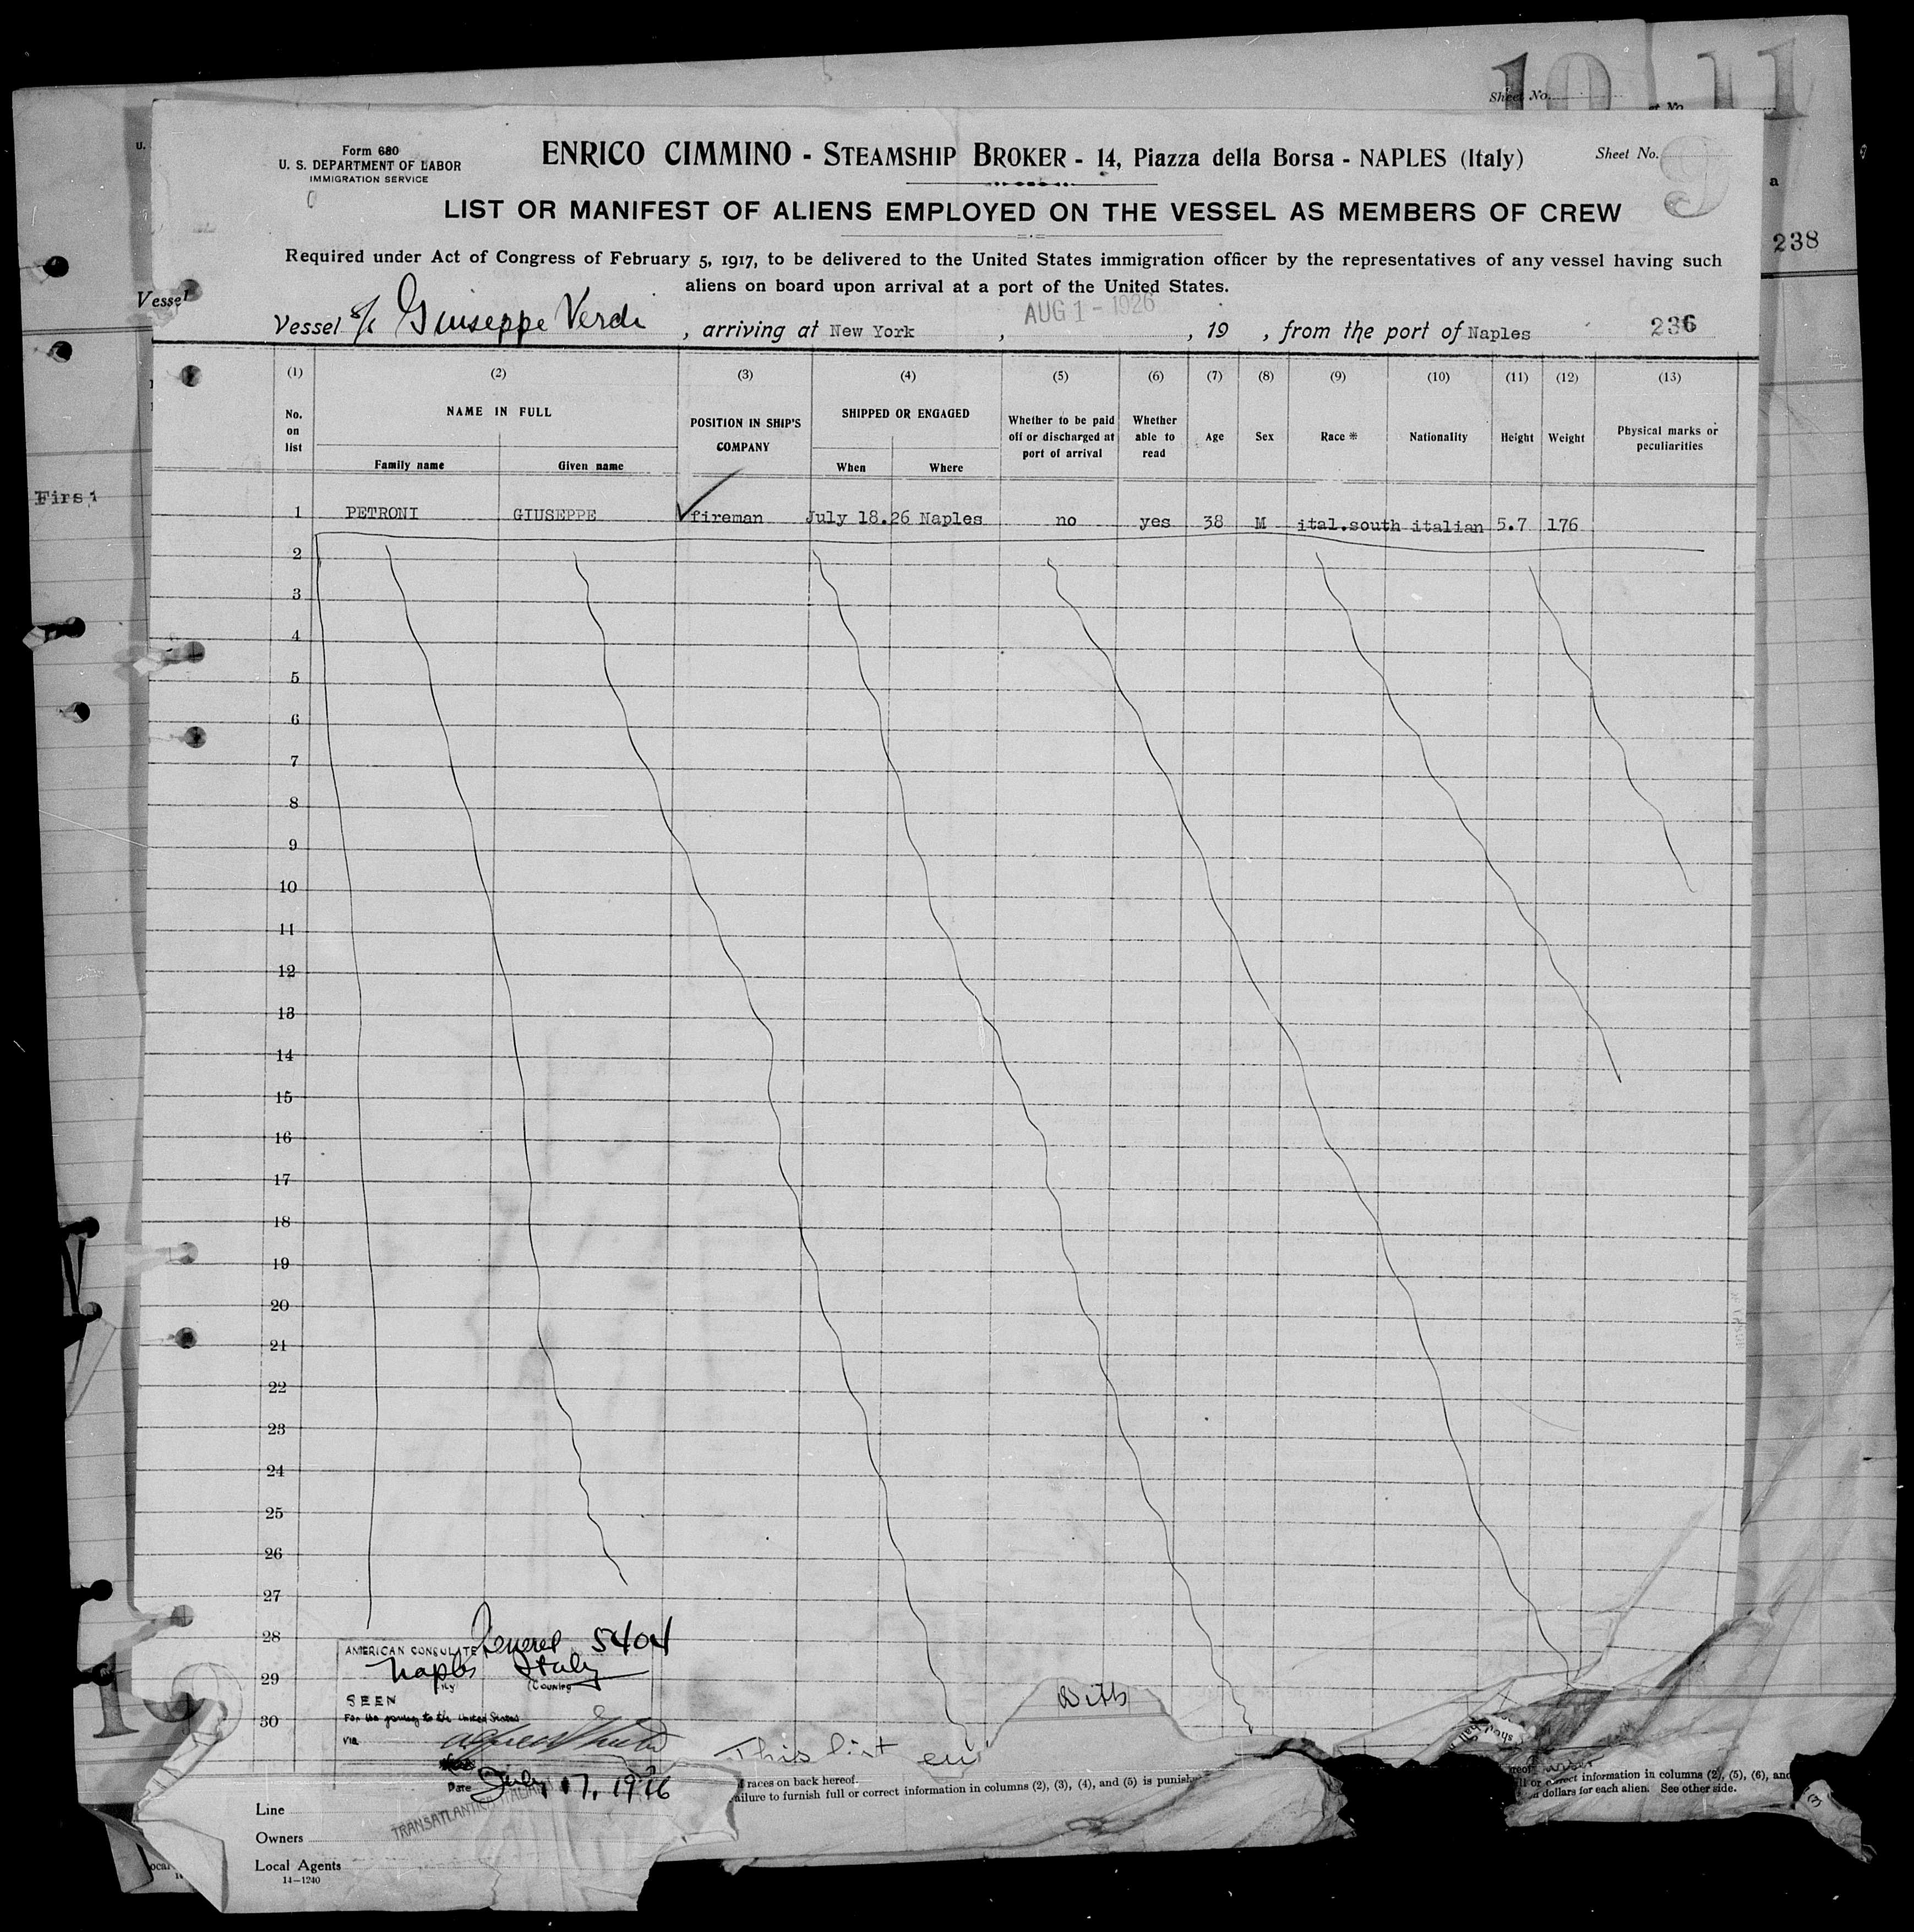 Sheet No.
10
11
Form 680
U. S. DEPARTMENT OF LABOR
IMMIGRATION SERVICE
ENRICO CIMMINO - STEAMSHIP BROKER - 14, Piazza della Borsa - NAPLES (Italy)
Sheet No.
9
LIST OR MANIFEST OF ALIENS EMPLOYED ON THE VESSEL AS MEMBERS OF CREW
238
Required under Act of Congress of February 5, 1917, to be delivered to the United States immigration officer by the representatives of any vessel having such
aliens on board upon arrival at a port of the United States.
Vessel
Vessel s/s Giuseppe Verdi, arriving at New York, AUG 1 - 1926, 19 , from the port of Naples 236
(1) (2) (3) (4) (5) (6) (7) (8) (9) (10) (11) (12) (13)
No. on list
NAME IN FULL
Family name
Given name
POSITION IN SHIP'S COMPANY
SHIPPED OR ENGAGED
When
Where
Whether to be paid off or discharged at port of arrival
Whether able to read
Age
Sex
Race *
Nationality
Height
Weight
Physical marks or peculiarities
First
1 PETRONI GIUSEPPE fireman July 18.26 Naples no yes 38 M ital.south italian 5.7 176
2
3
4
5
6
7
8
9
10
11
12
13
14
15
16
17
18
19
20
21
22
23
24
25
26
27
28
29
30
AMERICAN CONSULATE General 5404
Naples Italy
City (Country)
SEEN
For the journey to the United States
VIA
Date July 17, 1926
This list
With
races on back hereof.
ailure to furnish full or correct information in columns (2), (3), (4), and (5) is punish
information in columns (2), (5), (6), and
dollars for each alien. See other side.
Line
TRANSATLANTICA ITALIANA
Owners
Local Agents
14—1240